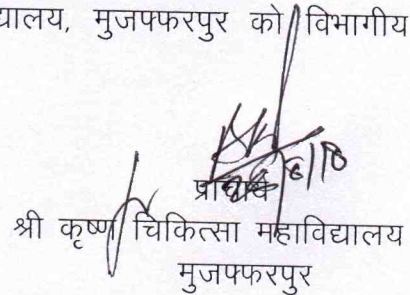 द्यालय, मुजफ्फरपुर को विभागीय
प्राचार्य
श्री कृष्ण चिकित्सा महाविद्यालय
मुजफ्फरपुर